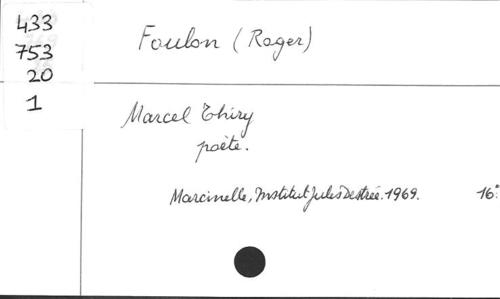 433
753
20
1
Foulon (Roger)
Marcel Thiry
poète.
Marcinelle, Institut Jules Destrée. 1969. 16°.